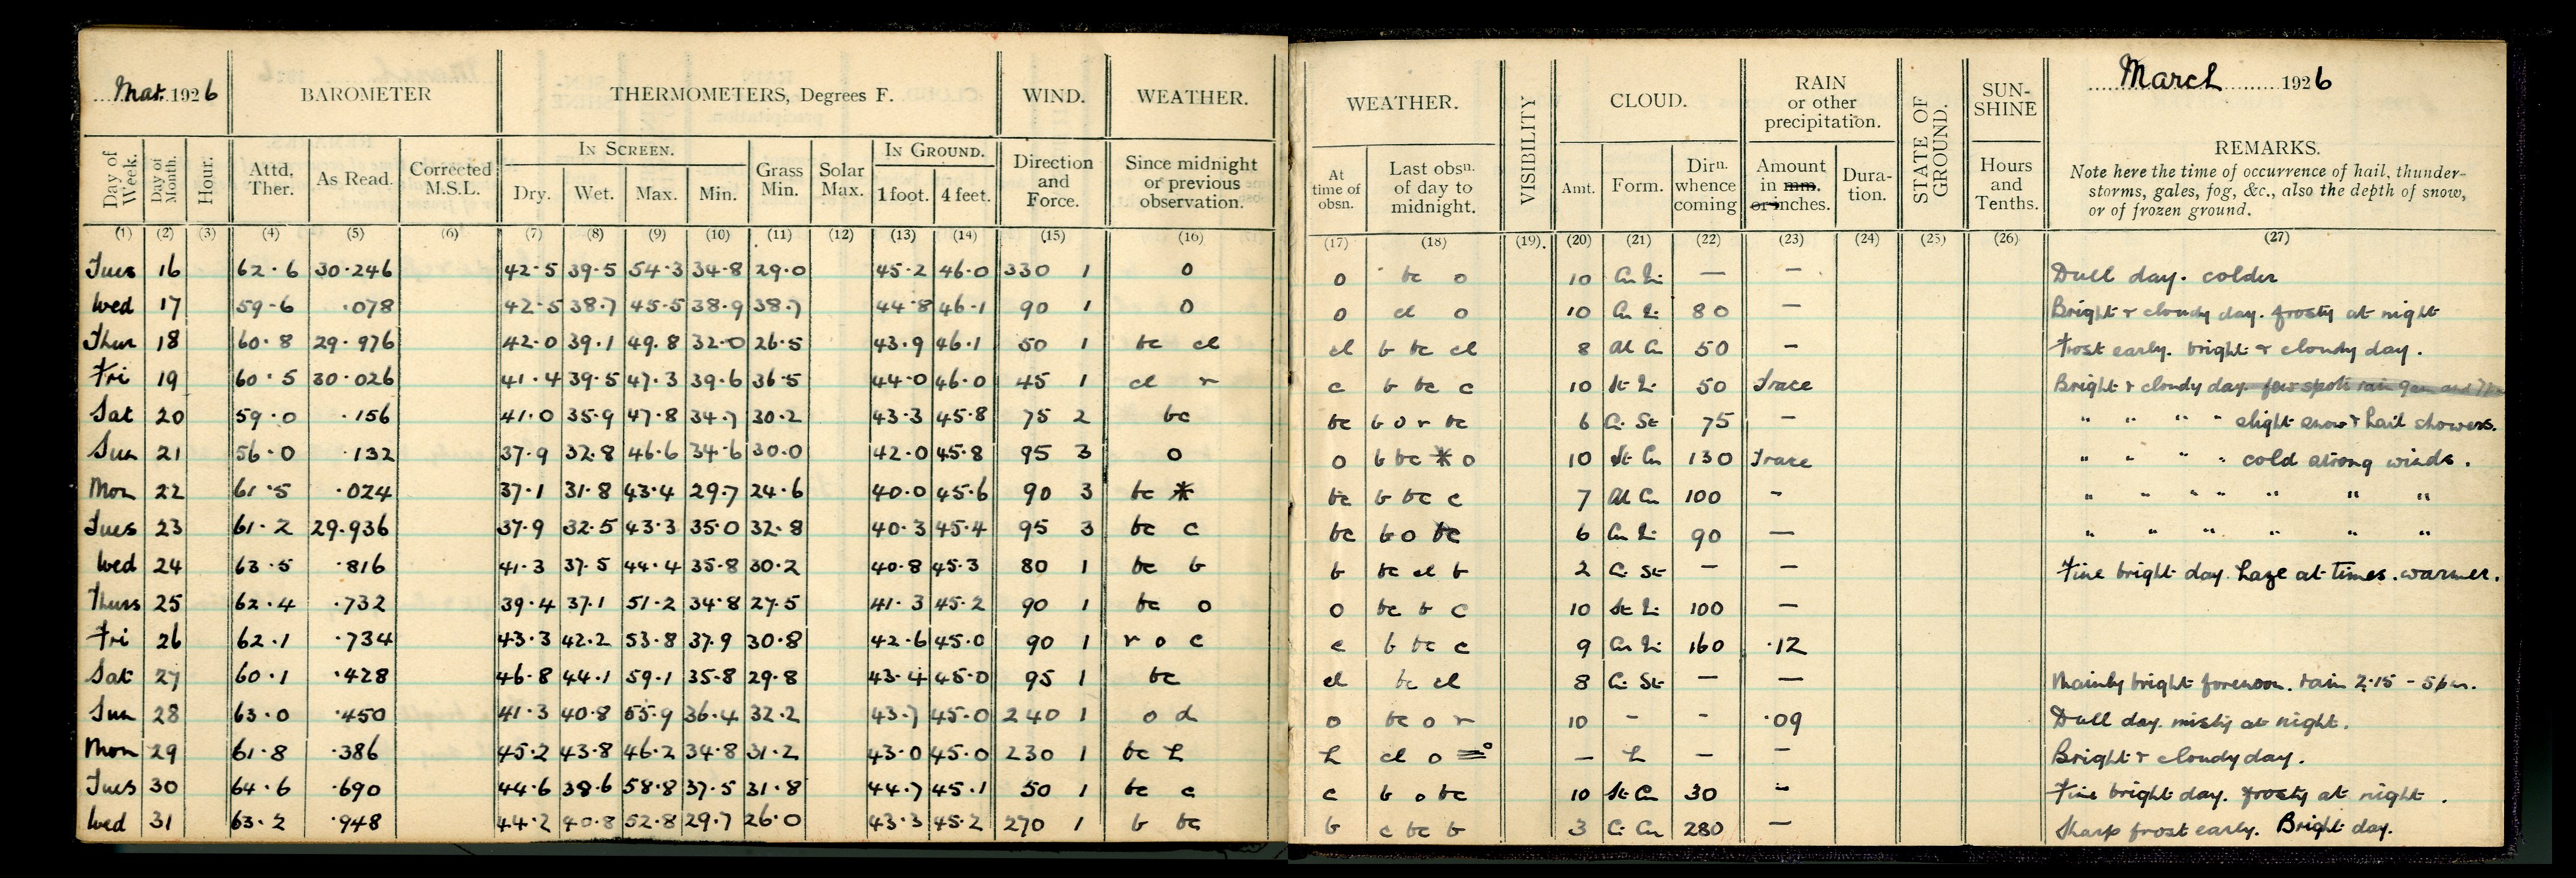 Mar. 1926 BAROMETER THERMOMETERS, Degrees F. WIND. WEATHER.
Day of Week. Day of Month. Hour. Attd. Ther. As Read. Corrected M.S.L. IN SCREEN. Dry. Wet. Max. Min. Grass Min. Solar Max. IN GROUND. 1 foot. 4 feet. Direction and Force. Since midnight or previous observation.
(1) (2) (3) (4) (5) (6) (7) (8) (9) (10) (11) (12) (13) (14) (15) (16)
Tues 16 62.6 30.246 42.5 39.5 54.3 34.8 29.0 45.2 46.0 330 1 o
Wed 17 59.6 .078 42.5 38.7 45.5 38.9 38.7 44.8 46.1 90 1 o
Thur 18 60.8 29.976 42.0 39.1 49.8 32.0 26.5 43.9 46.1 50 1 bc cl
Fri 19 60.5 30.026 41.4 39.5 47.3 39.6 36.5 44.0 46.0 45 1 cl r
Sat 20 59.0 .156 41.0 35.9 47.8 34.7 30.2 43.3 45.8 75 2 bc
Sun 21 56.0 .132 37.9 32.8 46.6 34.6 30.0 42.0 45.8 95 3 o
Mon 22 61.5 .024 37.1 31.8 43.4 29.7 24.6 40.0 45.6 90 3 bc *
Tues 23 61.2 29.936 37.9 32.5 43.3 35.0 32.8 40.3 45.4 95 3 bc c
Wed 24 63.5 .816 41.3 37.5 44.4 35.8 30.2 40.8 45.3 80 1 bc b
Thurs 25 62.4 .732 39.4 37.1 51.2 34.8 27.5 41.3 45.2 90 1 bc o
Fri 26 62.1 .734 43.3 42.2 53.8 37.9 30.8 42.6 45.0 90 1 r o c
Sat 27 60.1 .428 46.8 44.1 59.1 35.8 29.8 43.4 45.0 95 1 bc
Sun 28 63.0 .450 41.3 40.8 55.9 36.4 32.2 43.7 45.0 240 1 o d
Mon 29 61.8 .386 45.2 43.8 46.2 34.8 31.2 43.0 45.0 230 1 bc h
Tues 30 64.6 .690 44.6 38.6 58.8 37.5 31.8 44.7 45.1 50 1 bc c
Wed 31 63.2 .948 44.2 40.8 52.8 29.7 26.0 43.3 45.2 270 1 b bc
WEATHER. VISIBILITY CLOUD. RAIN or other precipitation. STATE OF GROUND. SUN-SHINE March 1926
At time of obsn. Last obsn. of day to midnight. Amt. Form. Dirn. whence coming Amount in mm. or inches. Dura-tion. Hours and Tenths. REMARKS.
Note here the time of occurrence of hail, thunder-
storms, gales, fog, &c., also the depth of snow,
or of frozen ground.
(17) (18) (19) (20) (21) (22) (23) (24) (25) (26) (27)
o bc o 10 Cu Ni — — Dull day. colder
o cl o 10 Cu Ni 80 — Bright & cloudy day. frosty at night
cl b bc cl 8 Al Cu 50 — Frost early. bright & cloudy day.
c b bc c 10 St Ni 50 Trace Bright & cloudy day. few spots rain 9am and
bc b o r bc 6 Ci St 75 — " " " " slight snow & hail showers.
o b bc * o 10 St Cu 130 Trace " " " " cold strong winds.
bc b bc c 7 Al Cu 100 - " " " " " " "
bc b o bc 6 Cu Ni 90 — " " " " " "
b bc cl b 2 Ci St — — Fine bright day. haze at times. warmer.
o bc b c 10 St Ni 100 —
c b bc c 9 Cu Ni 160 .12
cl bc cl 8 Ci St — — Mainly bright forenoon. rain 2.15 - 5pm.
o bc o r 10 - - .09 Dull day. misty at night.
h cl o ≡° — h — — Bright & cloudy day.
c b o bc 10 St Cu 30 - Fine bright day. frosty at night.
b c bc b 3 Ci Cu 280 — Sharp frost early. Bright day.